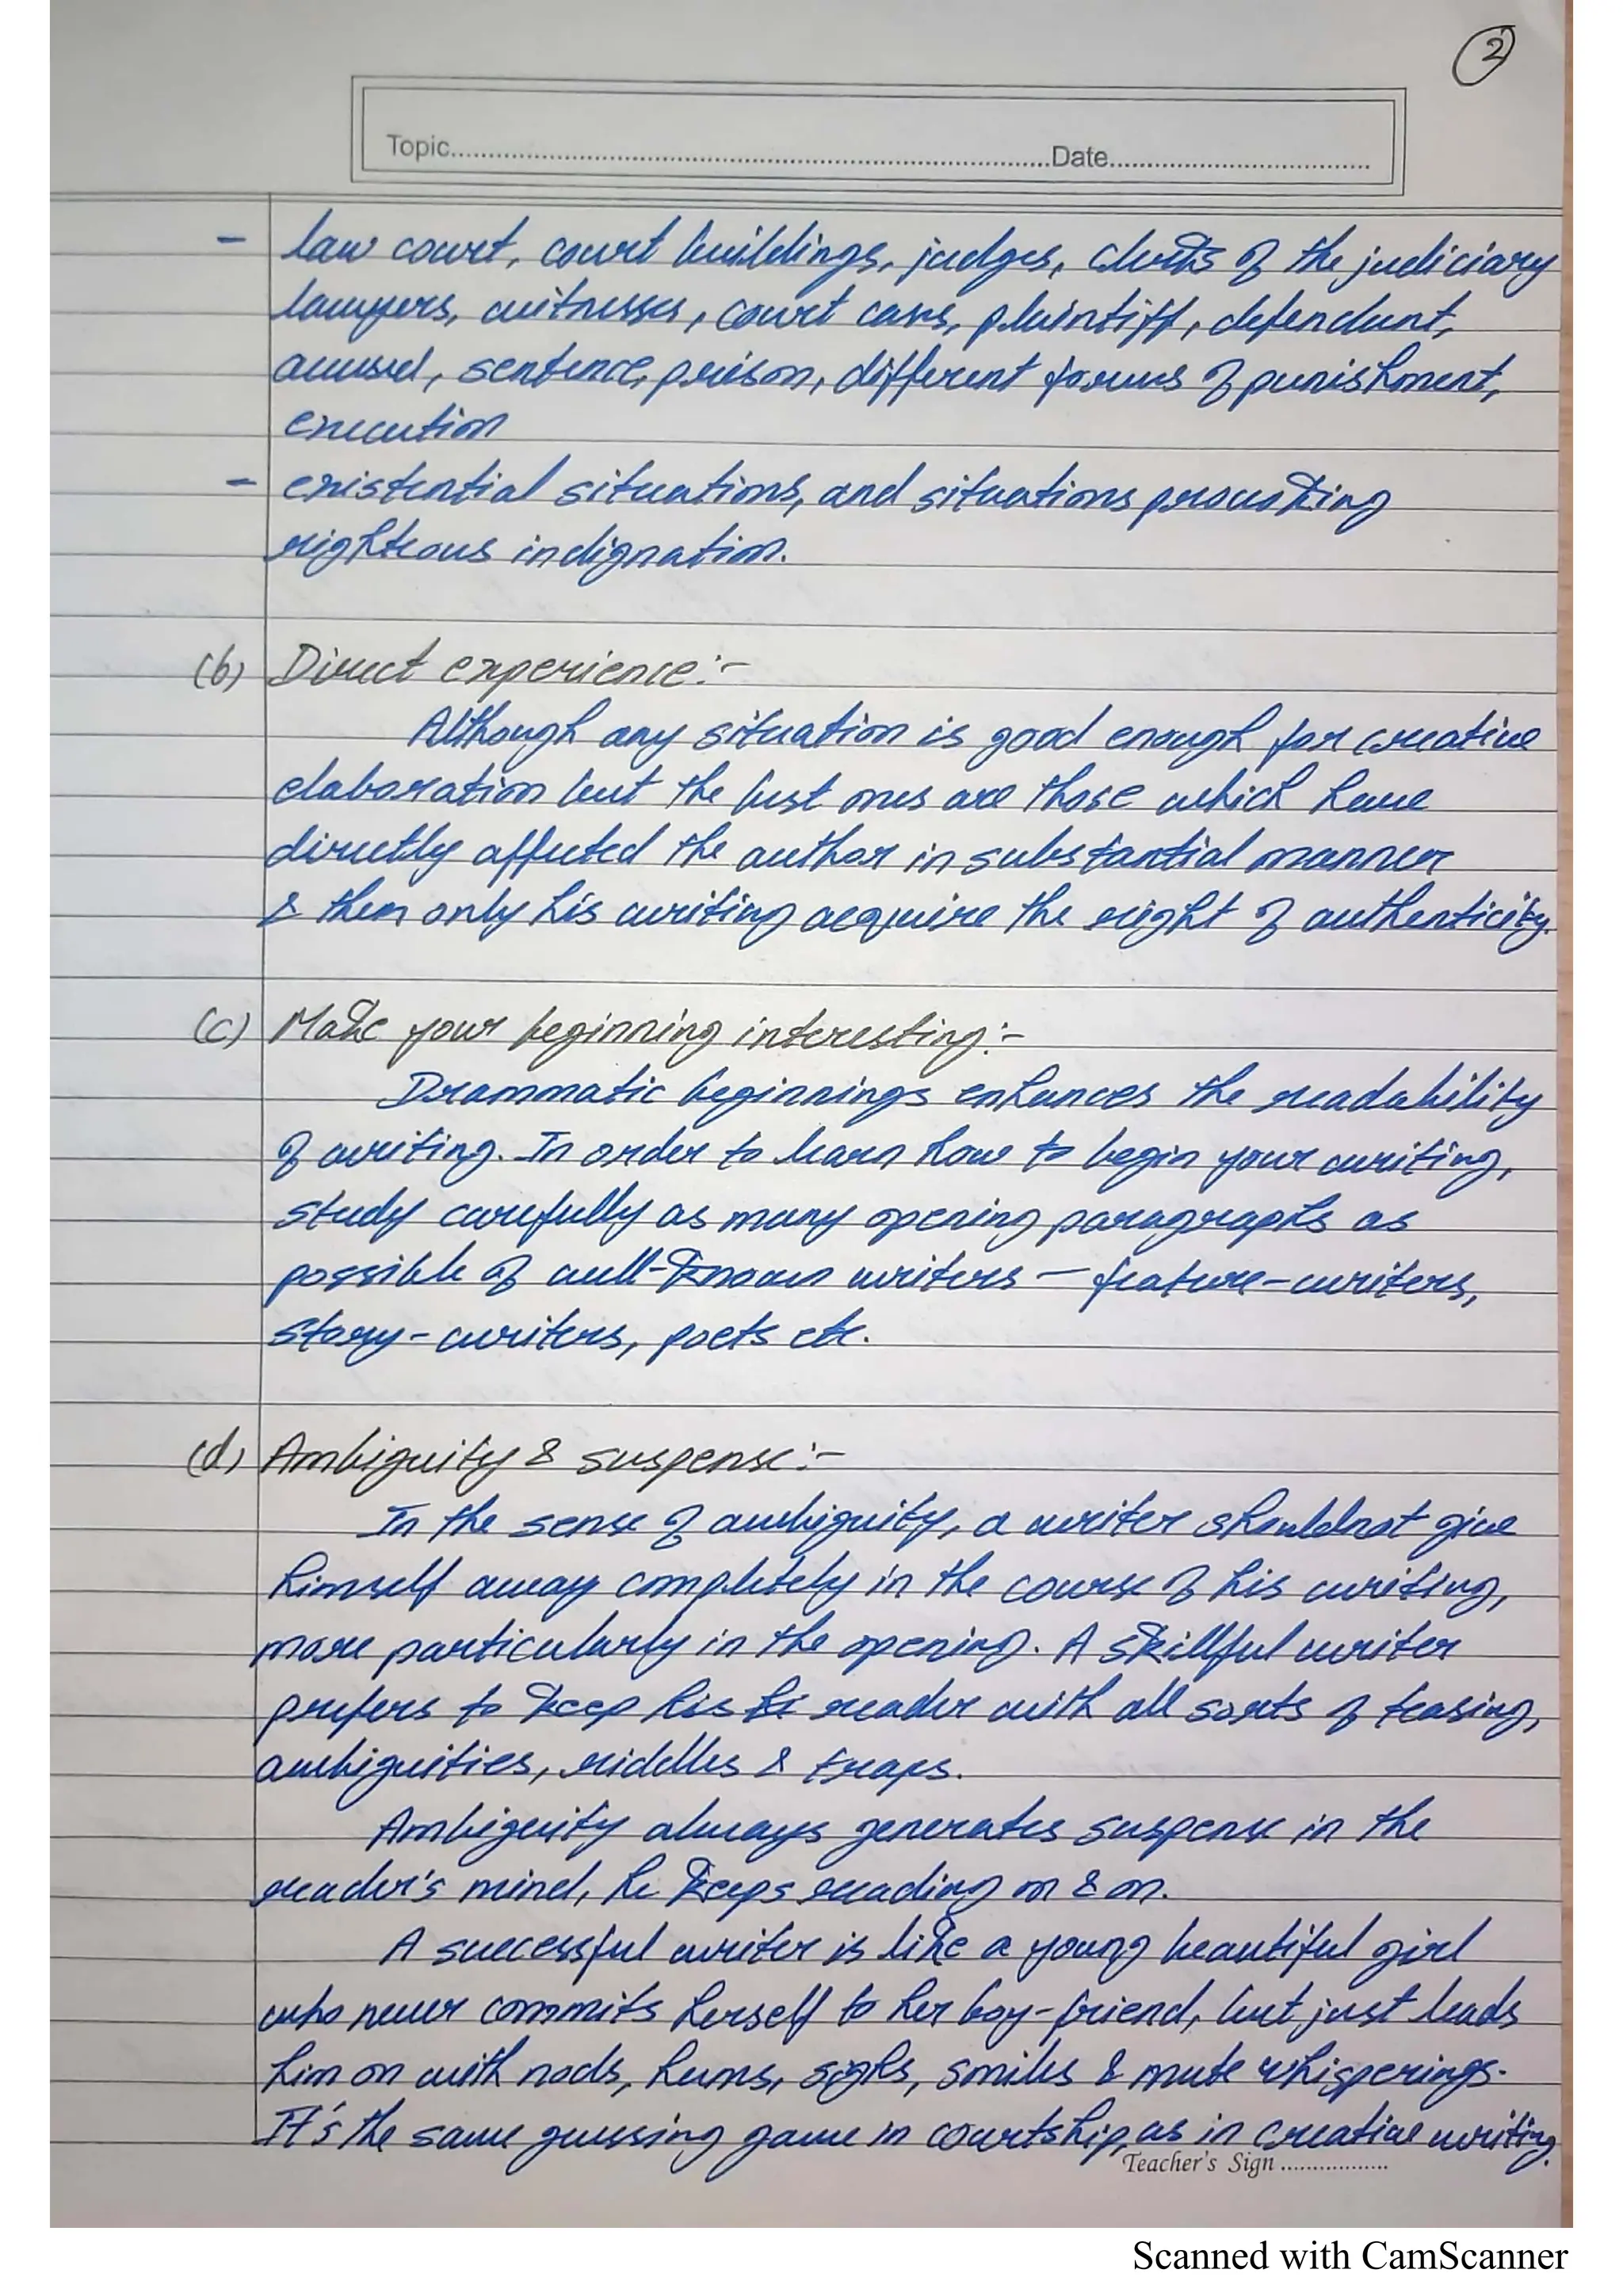 2
Topic.....Date.....
- law court, court buildings, judges, clerks of the judiciary
lawyers, witnesses, court cases, plaintiff, defendant,
accused, sentence, prison, different forms of punishment,
execution
- existential situations, and situations provoking
righteous indignation.
(b) Direct experience:-
Although any situation is good enough for creative
elaboration but the best ones are those which have
directly affected the author in substantial manner
& then only his writing acquire the right of authenticity.
(c) Make your beginning interesting:-
Drammatic beginnings enhances the readability
of writing. In order to learn how to begin your writing,
study carefully as many opening paragraphs as
possible of well-known writers - feature-writers,
story-writers, poets etc.
(d) Ambiguity & suspense:-
In the sense of ambiguity, a writer shouldnot give
himself away completely in the course of his writing,
more particularly in the opening. A skillful writer
prefers to keep his hi reader with all sorts of teasing,
ambiguities, riddles & traps.
Ambiguity always generates suspense in the
reader's mind, he keeps reading on & on.
A successful writer is like a young beautiful girl
who never commits herself to her boy-friend, but just leads
him on with nods, hums, sighs, smiles & mute whisperings.
It's the same guessing game in courtship, as in creative writing.
Teacher's Sign ..................
Scanned with CamScanner